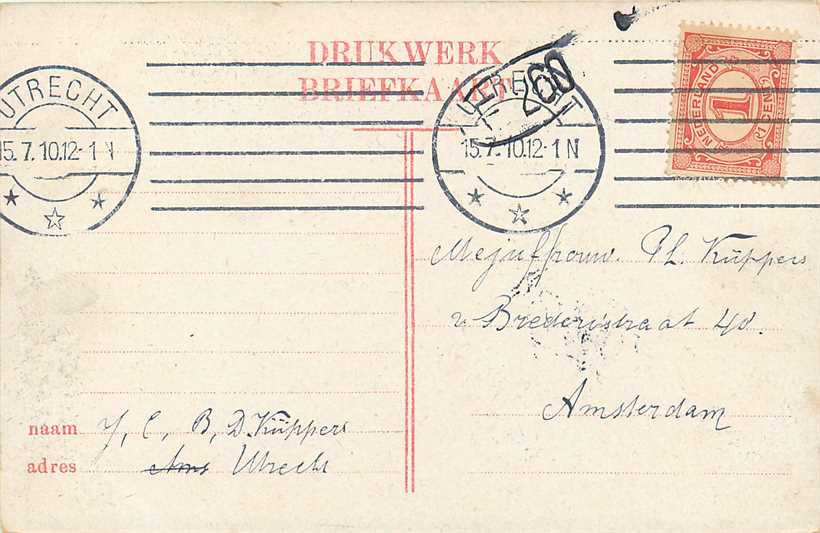 DRUKWERK
BRIEFKAART
UTRECHT
15.7.10.12-1 N
UTRECHT
15.7.10.12-1 N
260
NEDERLAND
1
1 CENT
Mejuffrouw. Ph. Küppers
v Brederistraat 40.
Amsterdam
naam Y, C, B, D. Küppers
adres Ams Utrecht